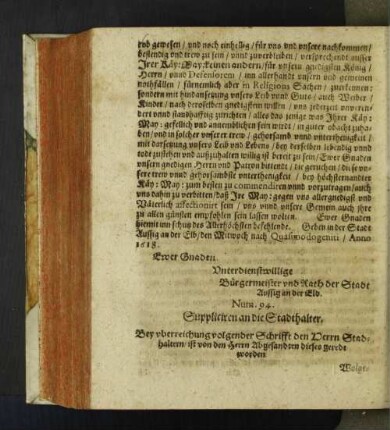 vnd gewesen / vnd noch einhellig / für vns vnd vnsere nachkommen /
bestendig vnd trew zu sein / vnnd zuverbleiben / versprechende ausser
Irer Käy: May: keinen andern / für vnsern gnedigsten König /
Herrn / vnnd Defensorem / inn allerhandt vnsern vnd gemeinen
nothfällen / fürnemlich aber in Religions Sachen / zuerkennen:
sondern mit hindansetzung vnsers Leib vnnd Guts / auch Weiber /
Kinder / nach deroselben gnedigsten willen / vns jederzeit vnverendert
vnnd standhafftig zurichten / alles das jenige was Ihrer Käy:
May: gefellich vnd annemblichen sein wirdt / in guter obacht zuhaben /
vnd in solcher vnserer trew / gehorsamb vnnd vnterthenigkeit /
mit darsetzung vnsers Leib vnd Lebens / bey derselben lebendig vnnd
todt zustehen vnd außzuhalten willig vñ bereit zu sein / Ewer Gnaden
vnsern gnedigen Herrn vnd Patron bittende / die geruchen / diese vnsere
trew vnnd gehorsambste vnterthenigkeit / bey höchsternandter
Käy: May: zum besten zu commendiren vnnd vorzutragen / auch
vns dahin zu verbitten / daß Ire May: gegen vns allergnedigst vnd
Väterlich affectionirt sein / vns vnnd vnsere Gemein auch ihre
zu allen günsten empfohlen sein lassen wollen. Ewer Gnaden
hiemit inn schutz des Allerhöchsten befehlende. Geben in der Stadt
Aussig an der Elb / den Mitwoch nach Quasimodogeniti / Anno
1618.
Ewer Gnaden
Vnterdienstwillige
Bürgermeister vnd Rath der Stadt
Aussig an der Elb.
Num. 94.
Suppliciren an die Stadthalter.
Bey vberreichung volgender Schrifft den Herrn Stadthaltern /
ist von den Herrn Abgesandten dieses geredt
worden